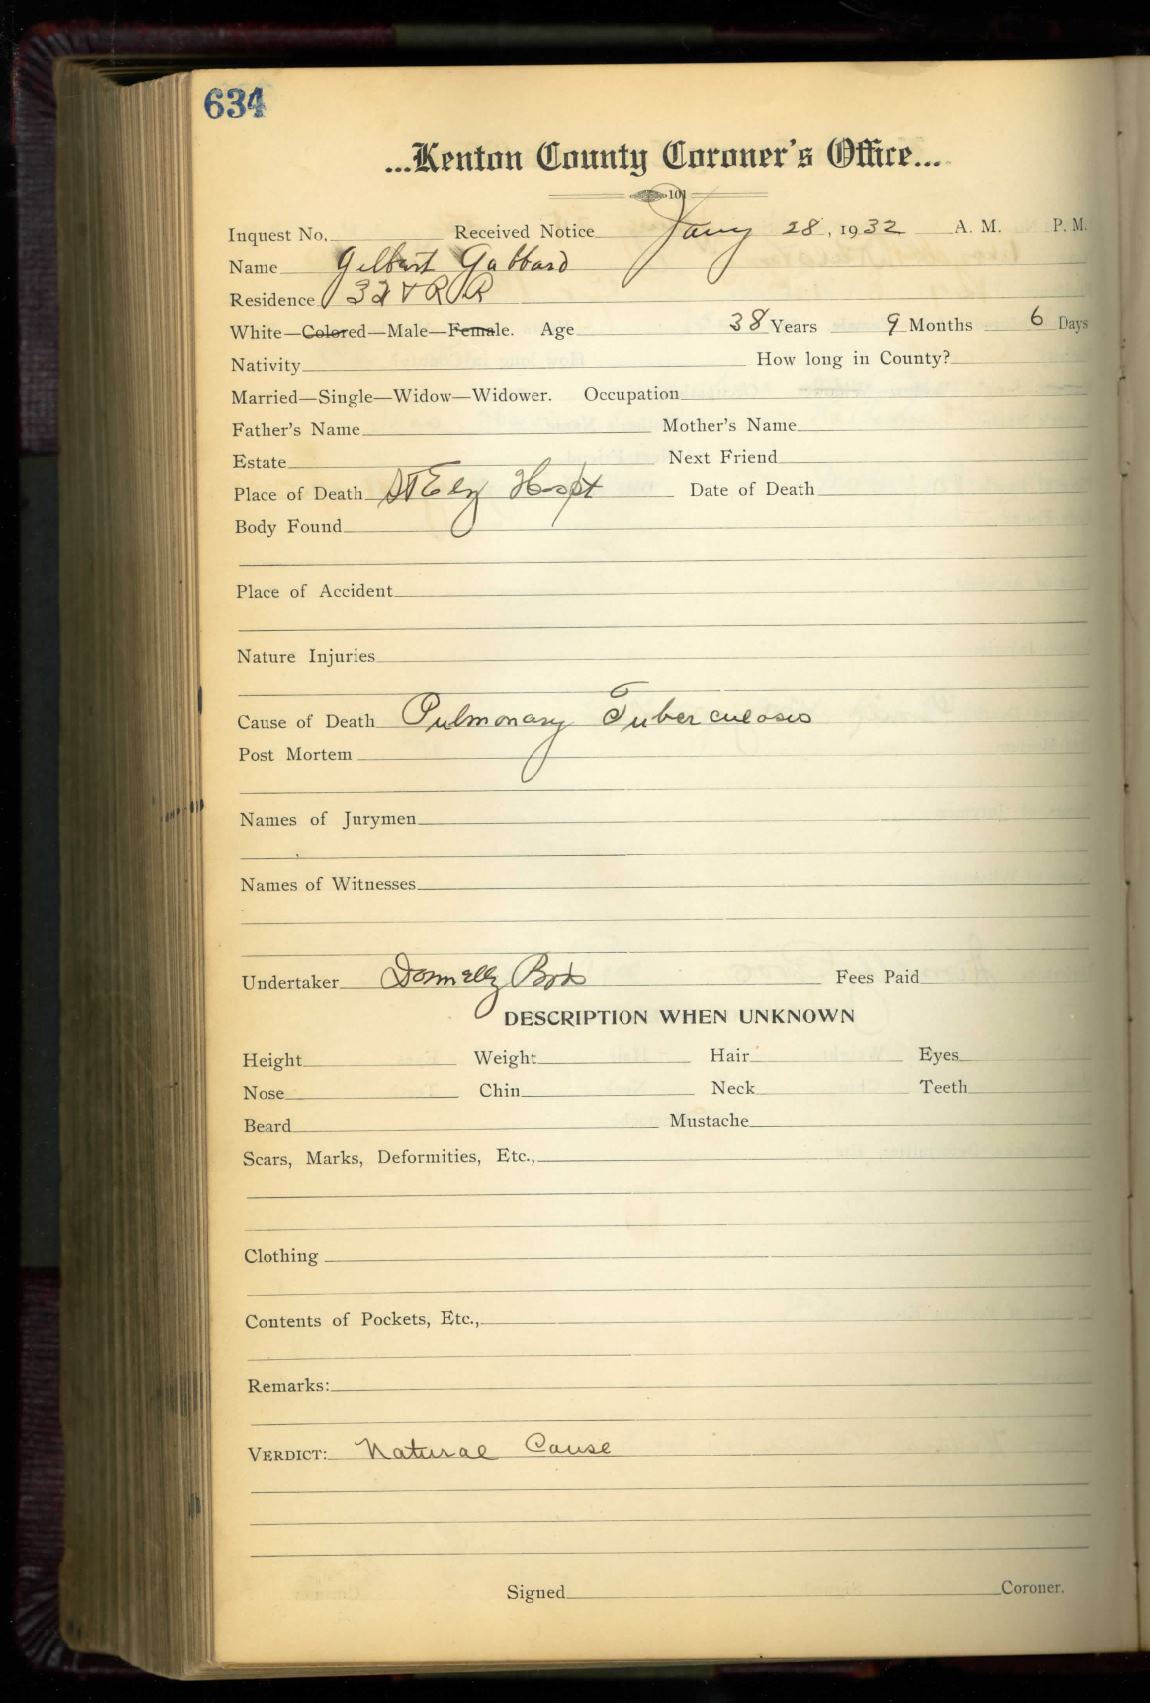 634
...Kenton County Coroner's Office...
101
Inquest No. Received Notice Jany 28, 1932 A. M. P. M.
Name Gilbert Gabbard
Residence 32 & R R
White—Colored—Male—Female. Age 38 Years 9 Months 6 Days
Nativity How long in County?
Married—Single—Widow—Widower. Occupation
Father's Name Mother's Name
Estate Next Friend
Place of Death St Elz Hospt Date of Death
Body Found
Place of Accident
Nature Injuries
Cause of Death Pulmonary Tuberculosis
Post Mortem
Names of Jurymen
Names of Witnesses
Undertaker Donnelly Bros Fees Paid
DESCRIPTION WHEN UNKNOWN
Height Weight Hair Eyes
Nose Chin Neck Teeth
Beard Mustache
Scars, Marks, Deformities, Etc.,
Clothing
Contents of Pockets, Etc.,
Remarks:
VERDICT: Natural Cause
Signed Coroner.